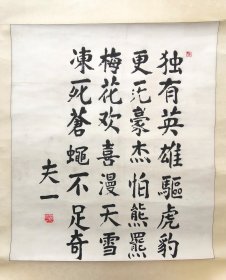 独有英雄驅虎豹
更无豪杰怕熊羆
梅花欢喜漫天雪
凍死蒼蠅不足奇
夫一